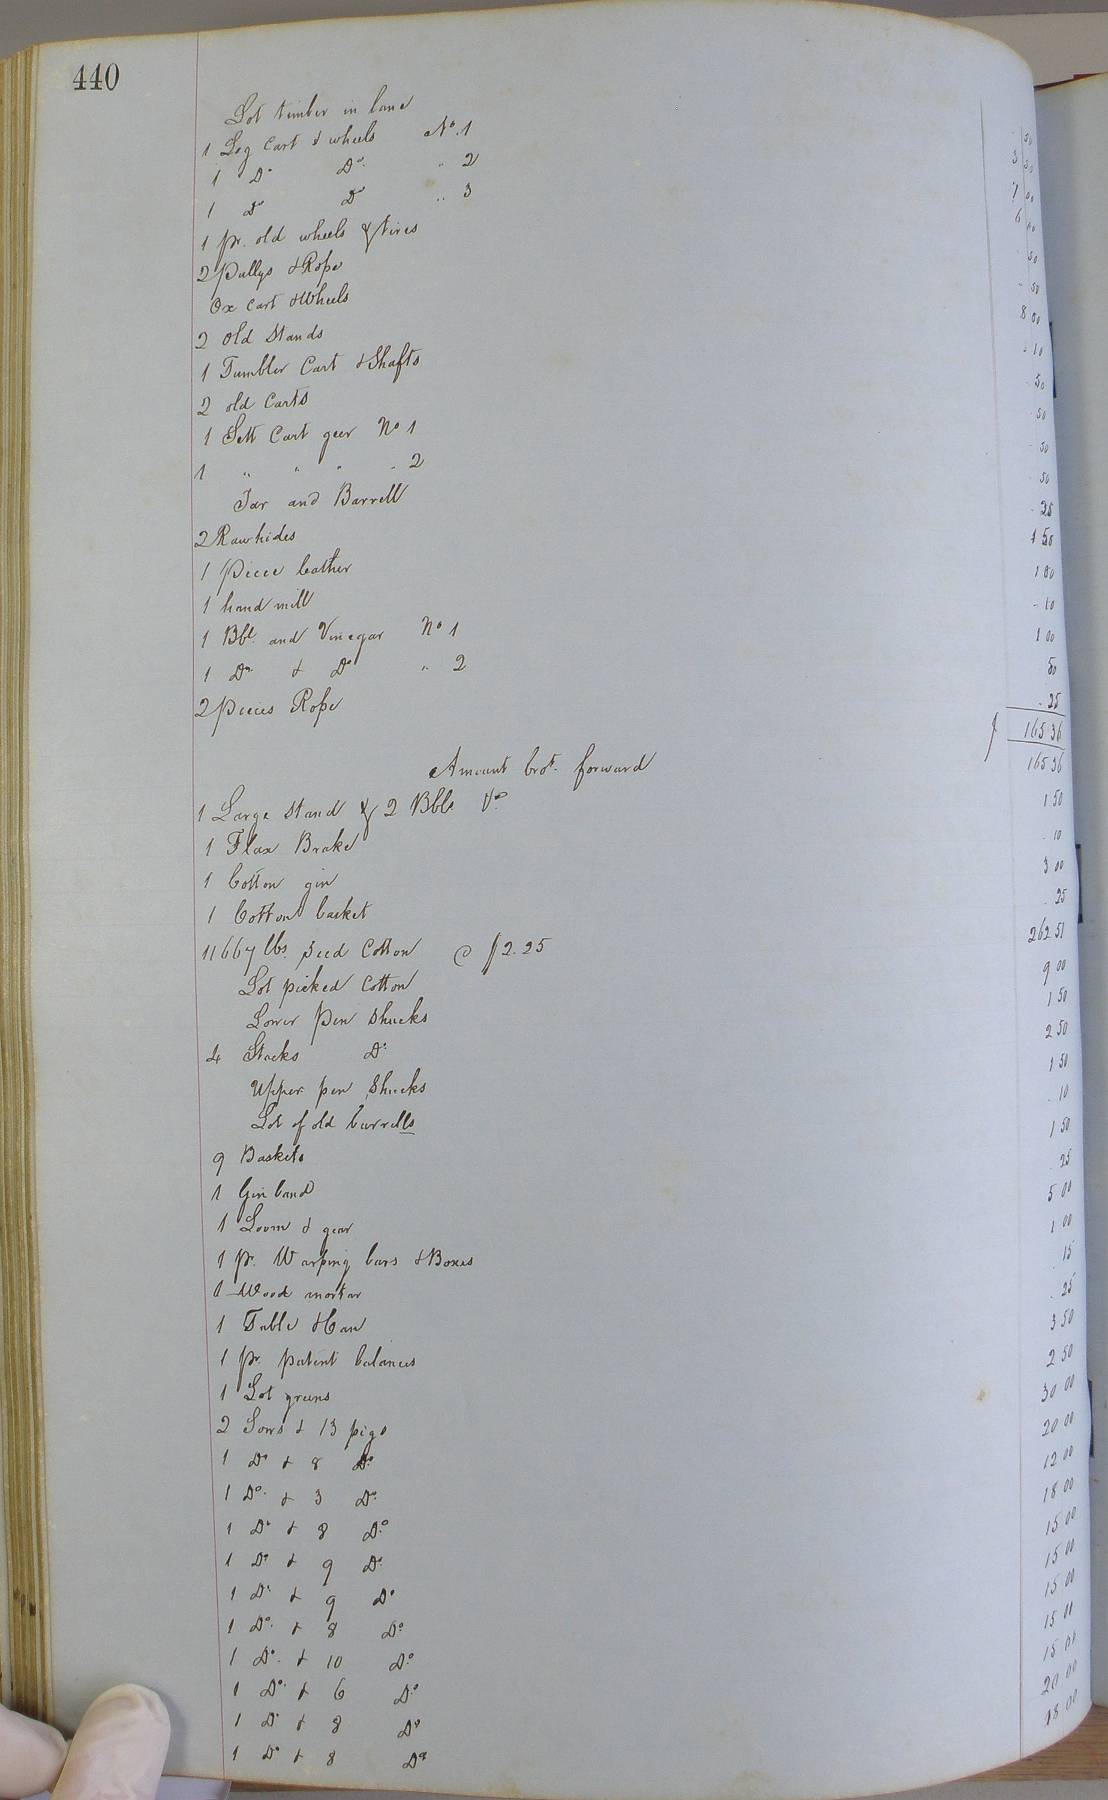 440
Lot timber in lane 50
1 Log Cart & wheels No. 1 3 50
1 Do. Do. " 2 7 00
1 Do Do " 3 6 00
1 pr. old wheels & tires 50
2 Pullys & Rope 50
Ox Cart & Wheels 8 00
2 old Stands 10
1 Tumbler Cart & Shafts 50
2 old Carts 50
1 Sett Cart geer No 1 50
1 " " " " 2 50
Tar and Barrell 25
2 Rawhides 1 50
1 Piece leather 1 00
1 hand mill 10
1 Bbl. and Vinegar No 1 1 00
1 Do & Do " 2 50
2 pieces Rope 25
165 36
Amount brot. forward 165 36
1 Large Stand & 2 Bbls Vo 1 50
1 Flax Brake 10
1 Cotton gin 3 00
1 Cotton basket 25
11667 lbs. Seed Cotton @ $2.25 262 51
Lot picked Cotton 9 00
Lower Pen Shucks 1 50
4 Stacks Do 2 50
Upper pen Shucks 1 50
Lot of old barrells 10
9 Baskets 1 50
1 Gin band 25
1 Loom & gear 5 00
1 pr. Warping bars & Boxes 1 00
1 Wood mortar 15
1 Table & Can 25
1 pr. patent balances 3 50
1 Lot greens 2 50
2 Sows & 13 pigs 30 00
1 Do & 8 Do. 20 00
1 Do. & 3 Do. 12 00
1 Do & 8 Do. 18 00
1 Do & 9 Do. 15 00
1 Do & 9 Do 15 00
1 Do. & 8 Do. 15 00
1 Do. & 10 Do. 15 00
1 Do. & 6 Do. 15 00
1 Do & 8 Do 20 00
1 Do & 8 Do 18 00